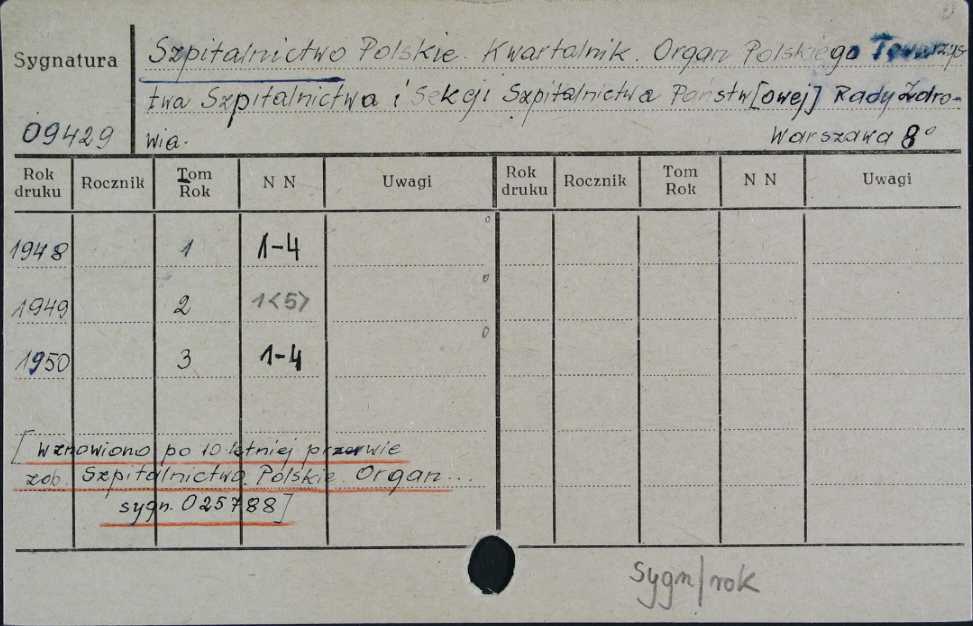 Sygnatura
09429
Szpitalnictwo Polskie. Kwartalnik. Organ Polskiego Towarzys
twa Szpitalnictwa i Sekcji Szpitalnictwa Państw[owej] Rady Zdro-
wia. Warszawa 8°
Rok druku Rocznik Tom Rok N N Uwagi Rok druku Rocznik Tom Rok N N Uwagi
1948 1 1-4
1949 2 1<5>
1950 3 1-4
[Wznowiono po 10 letniej przerwie
zob. Szpitalnictwo Polskie. Organ...
sygn. 025788]
sygn/rok